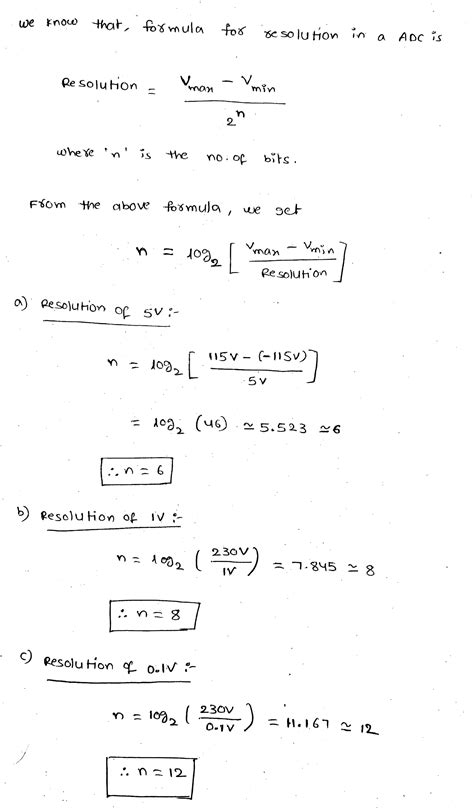 we know that, formula for resolution in a ADC is
Resolution = (Vmax - Vmin) / 2^n
where 'n' is the no. of bits.
From the above formula, we get
n = log₂ [ (Vmax - Vmin) / Resolution ]
a) Resolution of 5V :-
n = log₂ [ (115V - (-115V)) / 5V ]
= log₂ (46) ≃ 5.523 ≃ 6
∴ n = 6
b) Resolution of 1V :-
n = log₂ ( 230V / 1V ) = 7.845 ≃ 8
∴ n = 8
c) Resolution of 0.1V :-
n = log₂ ( 230V / 0.1V ) = 11.167 ≃ 12
∴ n = 12